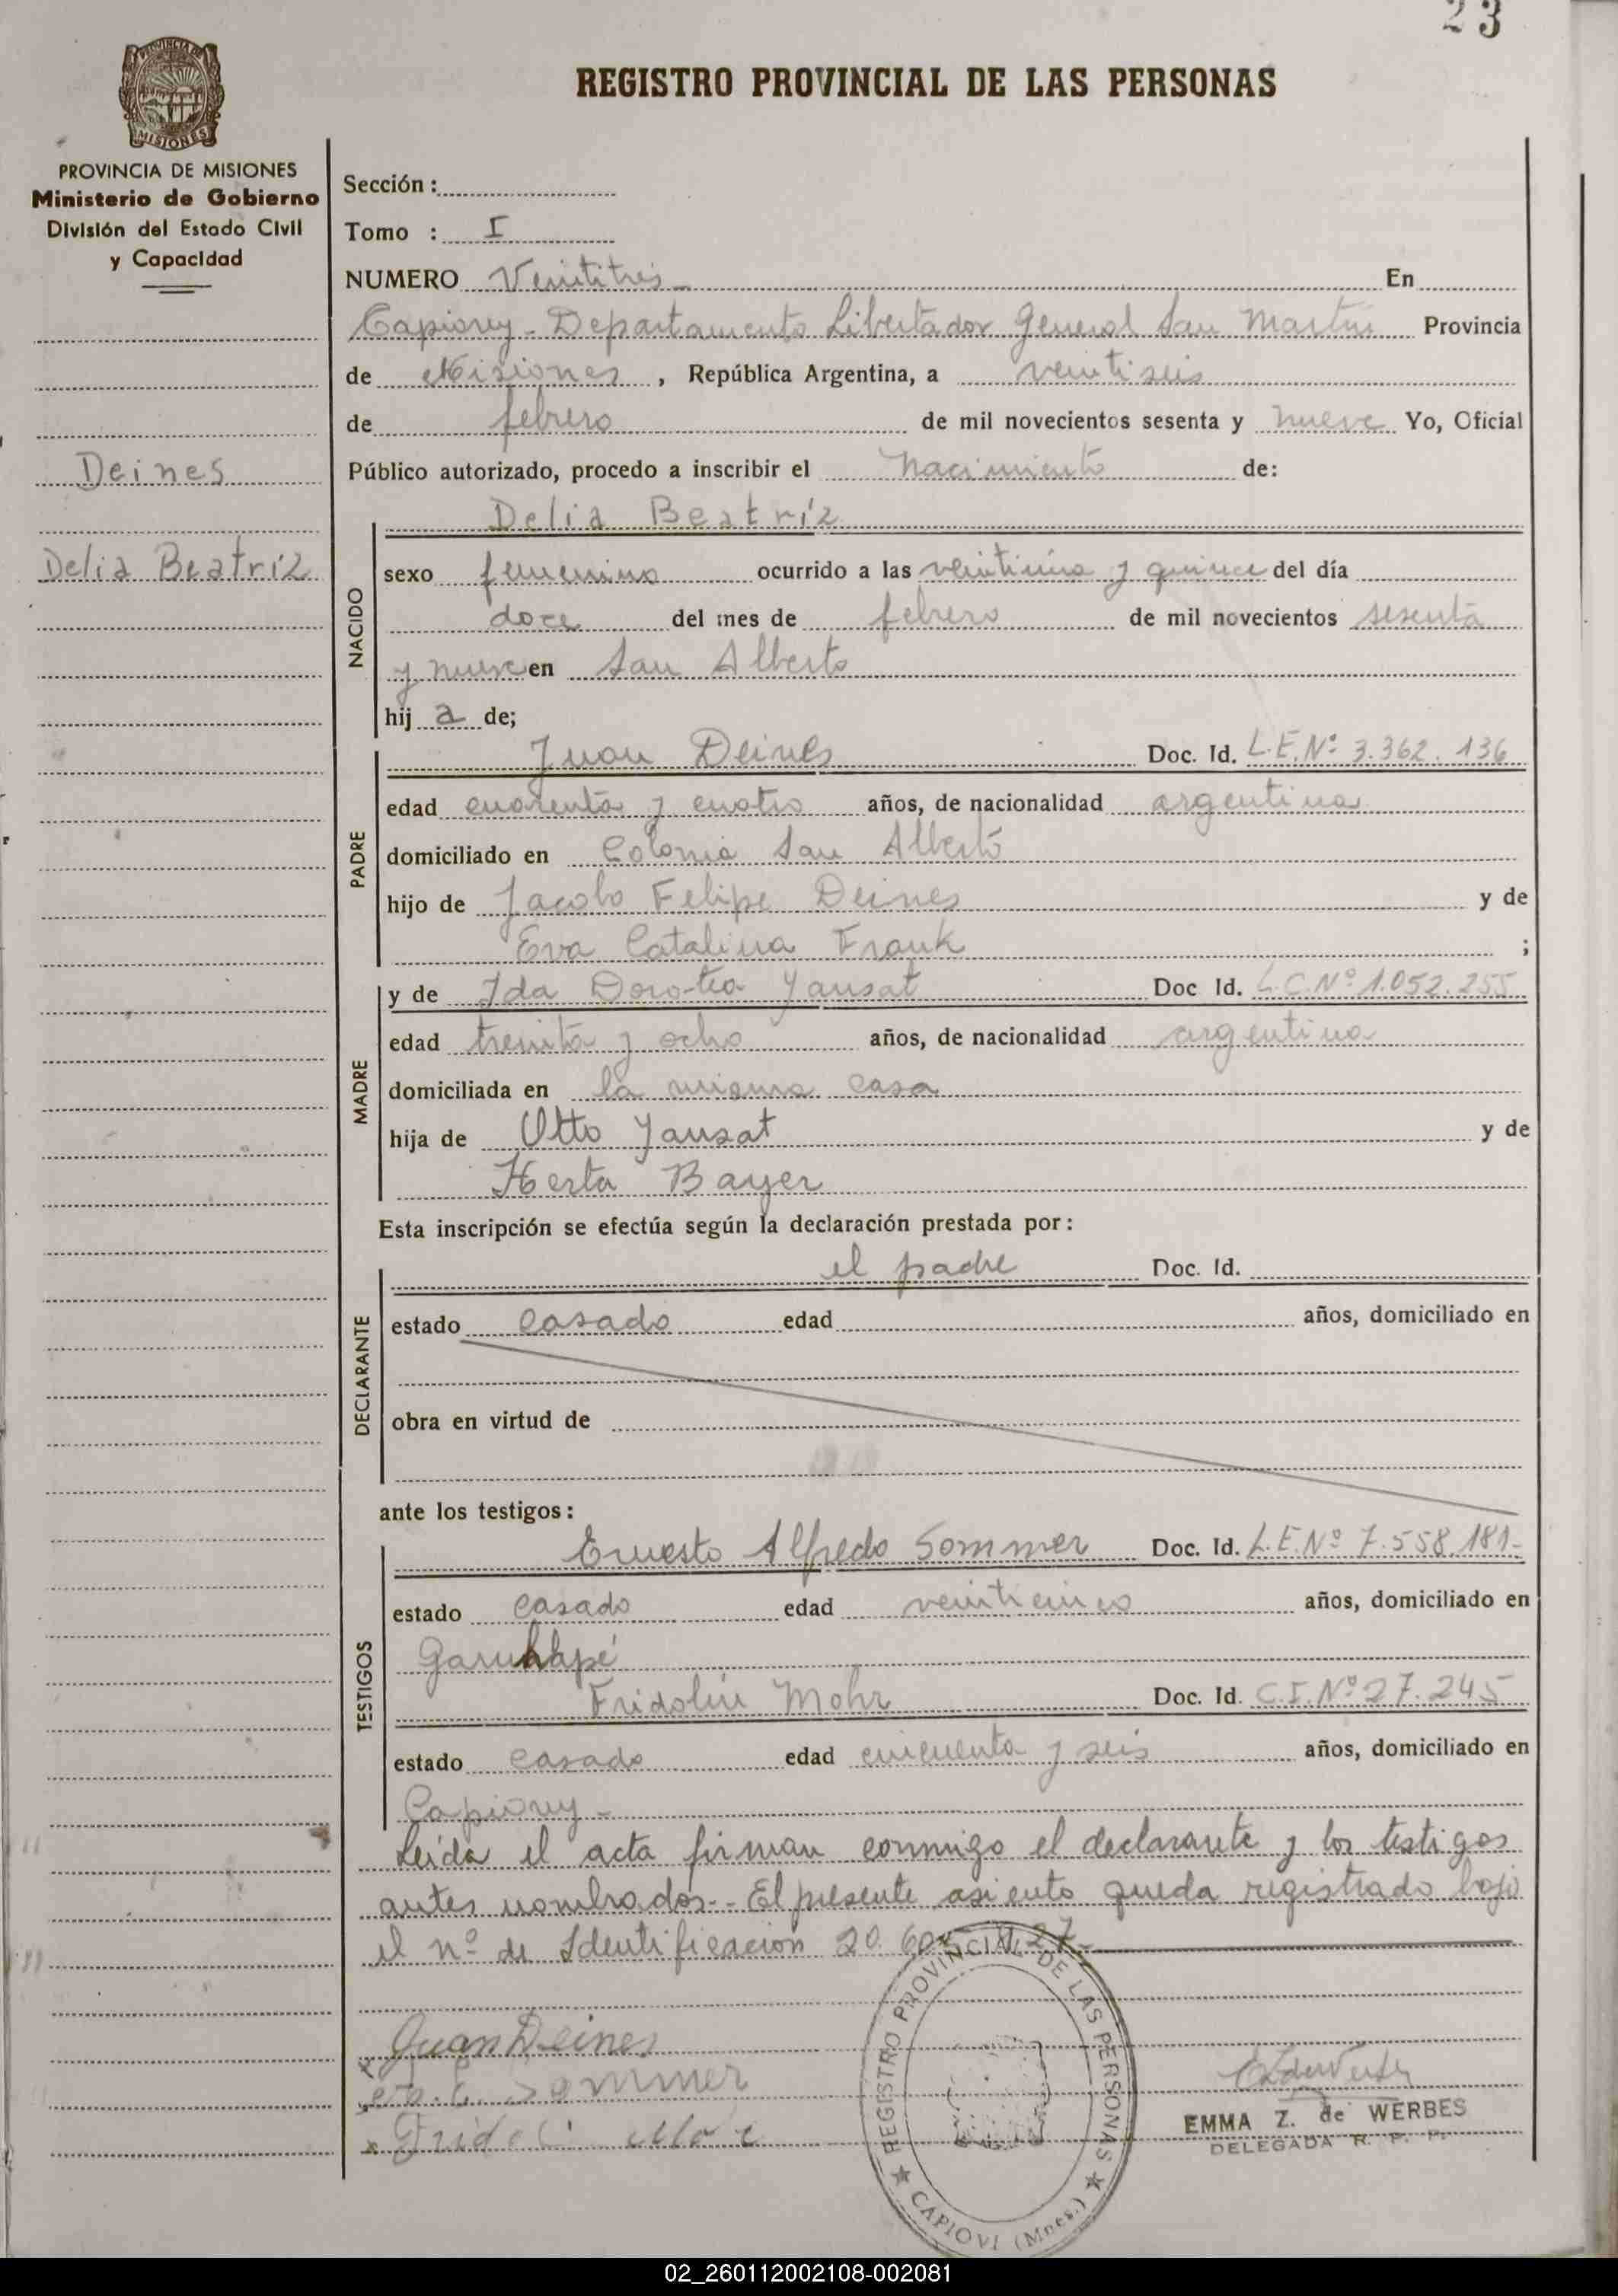 23
REGISTRO PROVINCIAL DE LAS PERSONAS
PROVINCIA DE MISIONES
MISIONES
PROVINCIA DE MISIONES
Ministerio de Gobierno
División del Estado Civil
y Capacidad
Deines
Delia Beatriz
Sección :
Tomo : I
NUMERO Veintitrés En
Capiovy - Departamento Libertador General San Martín Provincia
de Misiones , República Argentina, a veintiseis
de febrero de mil novecientos sesenta y nueve Yo, Oficial
Público autorizado, procedo a inscribir el nacimiento de:
NACIDO
Delia Beatriz
sexo femenino ocurrido a las veintiuna y quince del día
doce del mes de febrero de mil novecientos sesenta
y nueve en San Alberto
hij a de;
PADRE
Juan Deines Doc. Id. L.E.Nº 3.362.136
edad cuarenta y cuatro años, de nacionalidad argentina
domiciliado en Colonia San Alberto
hijo de Jacobo Felipe Deines y de
Eva Catalina Frank ;
MADRE
y de Ida Dorotea Yansat Doc Id. L.C.Nº 1.052.255
edad treinta y ocho años, de nacionalidad argentina
domiciliada en la misma casa
hija de Otto Yansat y de
Herta Bayer
Esta inscripción se efectúa según la declaración prestada por:
DECLARANTE
el padre Doc. Id.
estado casado edad años, domiciliado en
obra en virtud de
ante los testigos:
TESTIGOS
Ernesto Alfredo Sommer Doc. Id. L.E.Nº 7.558.181-
estado casado edad veinticinco años, domiciliado en
Garuhapé
Fridolin Mohr Doc. Id. C.I.Nº 27.245
estado casado edad cincuenta y seis años, domiciliado en
Capiovy -
Leída el acta firman conmigo el declarante y los testigos
antes nombrados.- El presente asiento queda registrado bajo
el nº de Identificación 20.60
Juan Deines
Sommer
REGISTRO PROVINCIAL DE LAS PERSONAS
CAPIOVI (Mnes.)
EMMA Z. de WERBES
DELEGADA R. P. P.
02_260112002108-002081